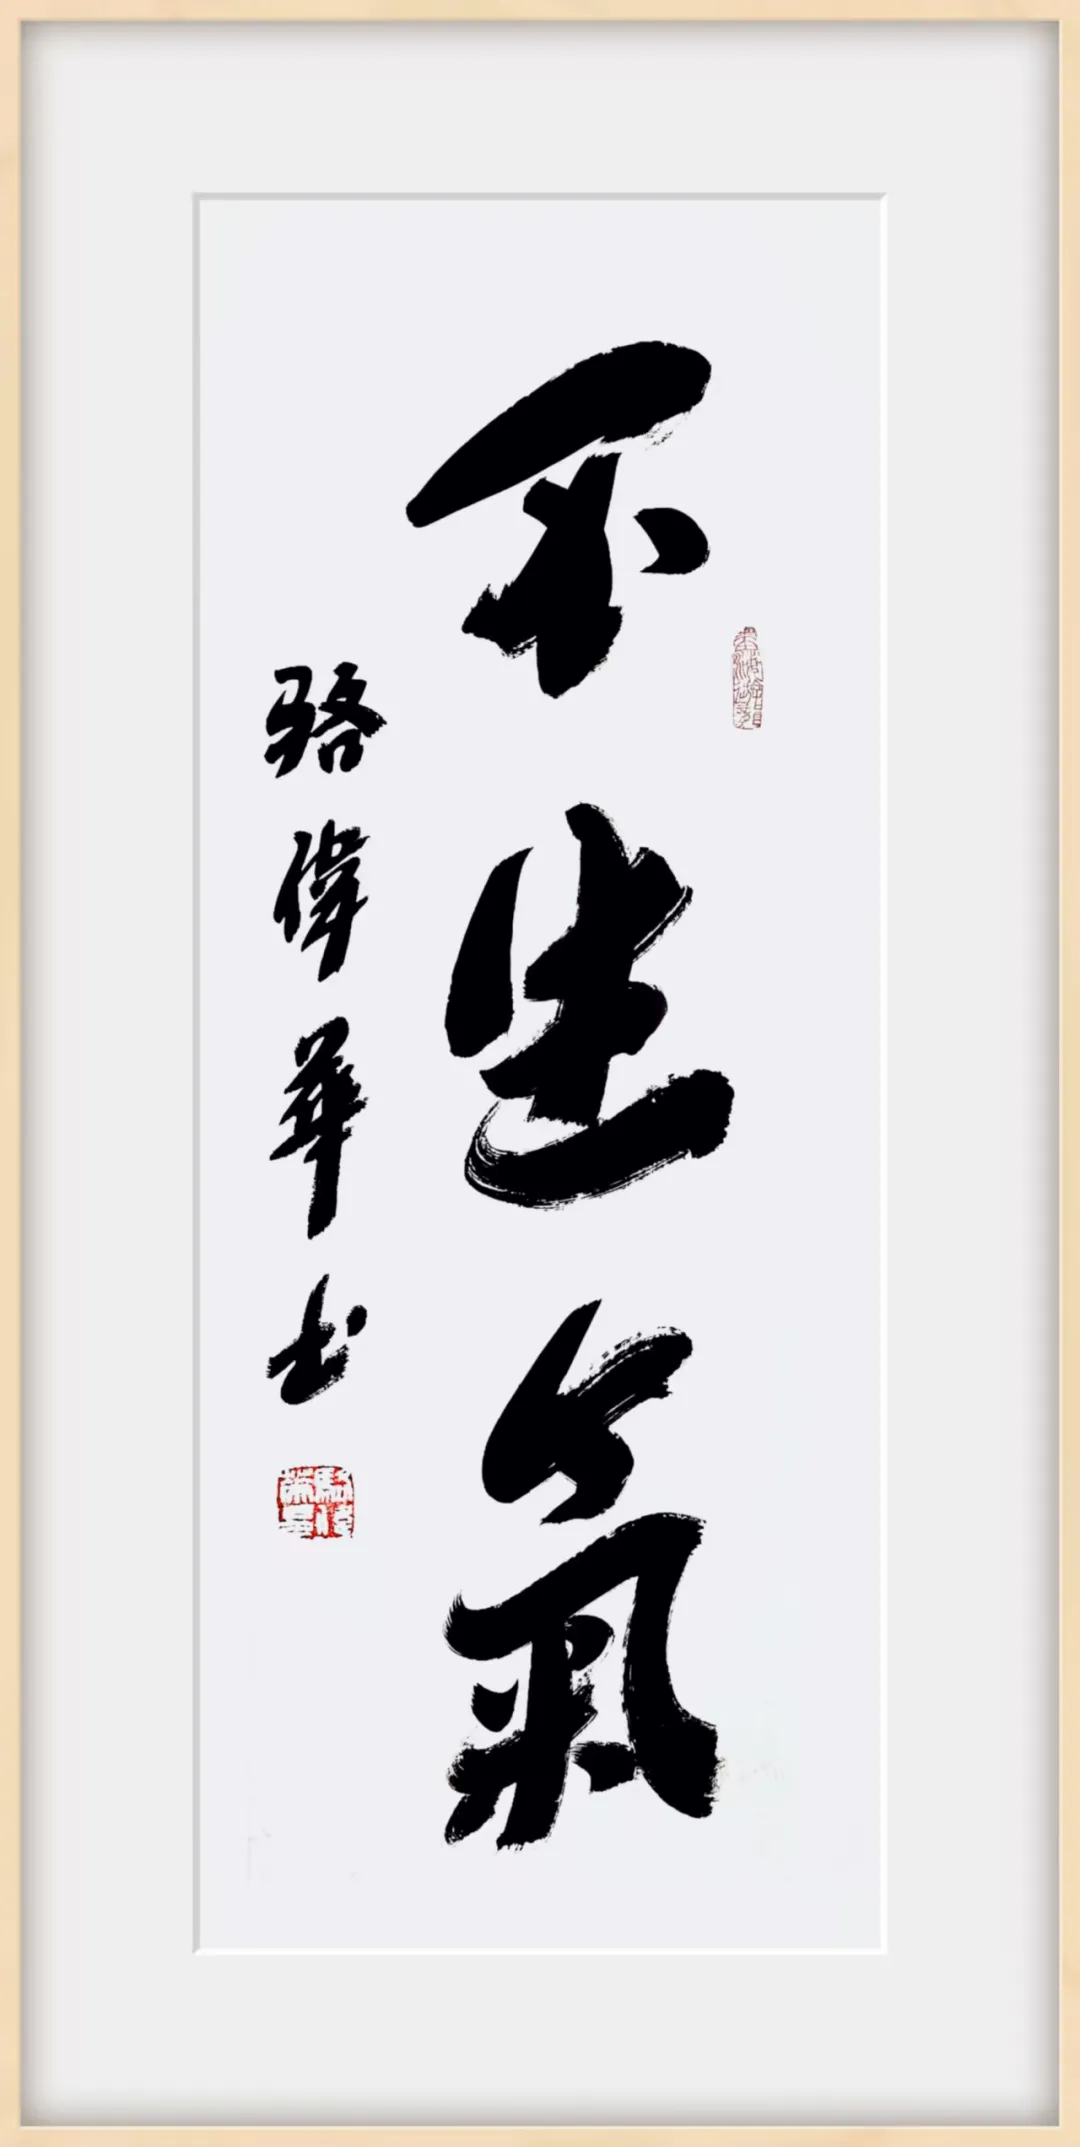 不生氣
骆偉華书